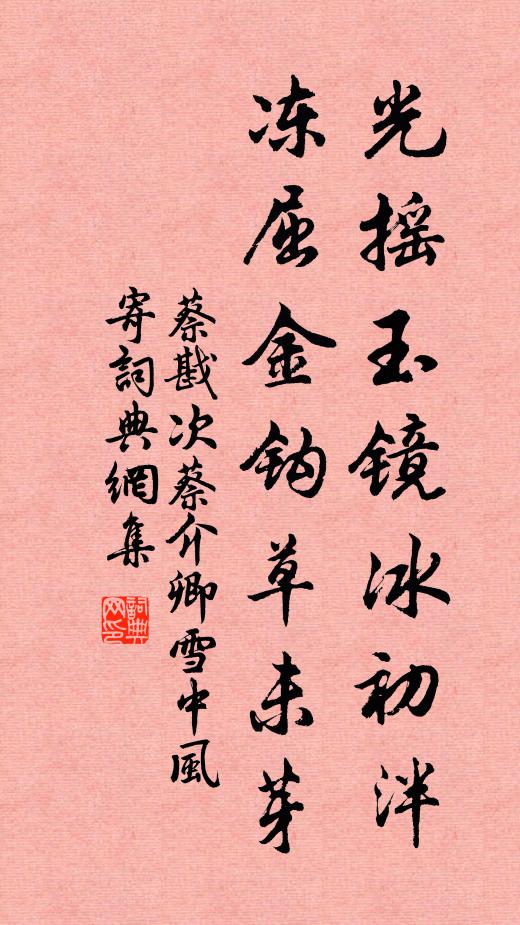 光摇玉镜冰初泮
冻屈金钩草未芽
蔡戡次蔡介卿雪中風
寄詞典網集
詞典網印